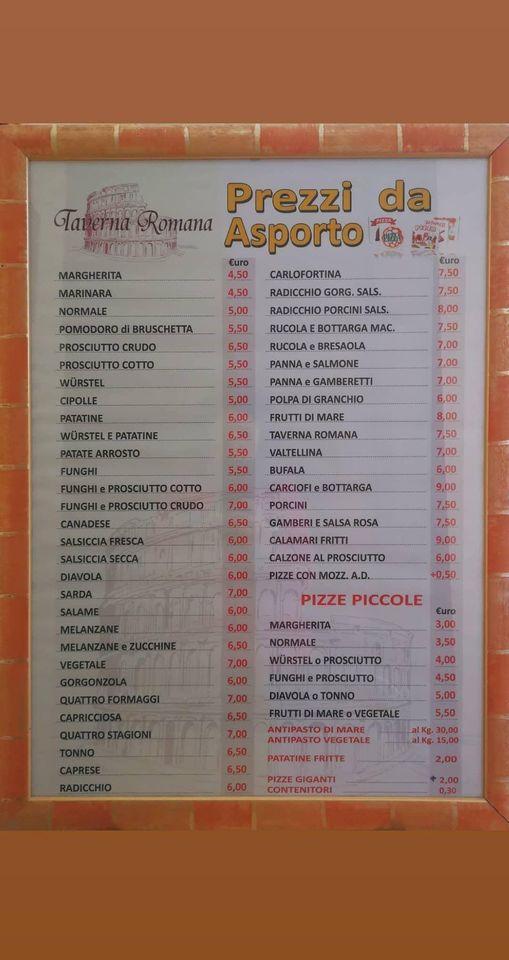 Taverna Romana
Prezzi da
Asporto
PIZZA
€uro
MARGHERITA 4,50
MARINARA 4,50
NORMALE 5,00
POMODORO di BRUSCHETTA 5,50
PROSCIUTTO CRUDO 6,50
PROSCIUTTO COTTO 5,50
WÜRSTEL 5,50
CIPOLLE 5,00
PATATINE 6,00
WÜRSTEL E PATATINE 6,50
PATATE ARROSTO 5,50
FUNGHI 5,50
FUNGHI e PROSCIUTTO COTTO 6,00
FUNGHI e PROSCIUTTO CRUDO 7,00
CANADESE 6,50
SALSICCIA FRESCA 6,00
SALSICCIA SECCA 6,00
DIAVOLA 6,00
SARDA 7,00
SALAME 6,00
MELANZANE 6,00
MELANZANE e ZUCCHINE 6,50
VEGETALE 7,00
GORGONZOLA 6,00
QUATTRO FORMAGGI 7,00
CAPRICCIOSA 6,50
QUATTRO STAGIONI 7,00
TONNO 6,50
CAPRESE 6,50
RADICCHIO 6,00
€uro
CARLOFORTINA 7,50
RADICCHIO GORG. SALS. 7,50
RADICCHIO PORCINI SALS. 8,00
RUCOLA E BOTTARGA MAC. 7,50
RUCOLA e BRESAOLA 7,00
PANNA e SALMONE 7,00
PANNA e GAMBERETTI 7,00
POLPA DI GRANCHIO 6,00
FRUTTI DI MARE 8,00
TAVERNA ROMANA 7,50
VALTELLINA 7,00
BUFALA 6,00
CARCIOFI e BOTTARGA 9,00
PORCINI 7,50
GAMBERI E SALSA ROSA 7,50
CALAMARI FRITTI 9,00
CALZONE AL PROSCIUTTO 6,00
PIZZE CON MOZZ. A.D. +0,50
PIZZE PICCOLE
€uro
MARGHERITA 3,00
NORMALE 3,50
WÜRSTEL o PROSCIUTTO 4,00
FUNGHI e PROSCIUTTO 4,50
DIAVOLA o TONNO 5,00
FRUTTI DI MARE o VEGETALE 5,50
ANTIPASTO DI MARE al Kg. 30,00
ANTIPASTO VEGETALE al Kg. 15,00
PATATINE FRITTE 2,00
PIZZE GIGANTI + 2,00
CONTENITORI 0,30